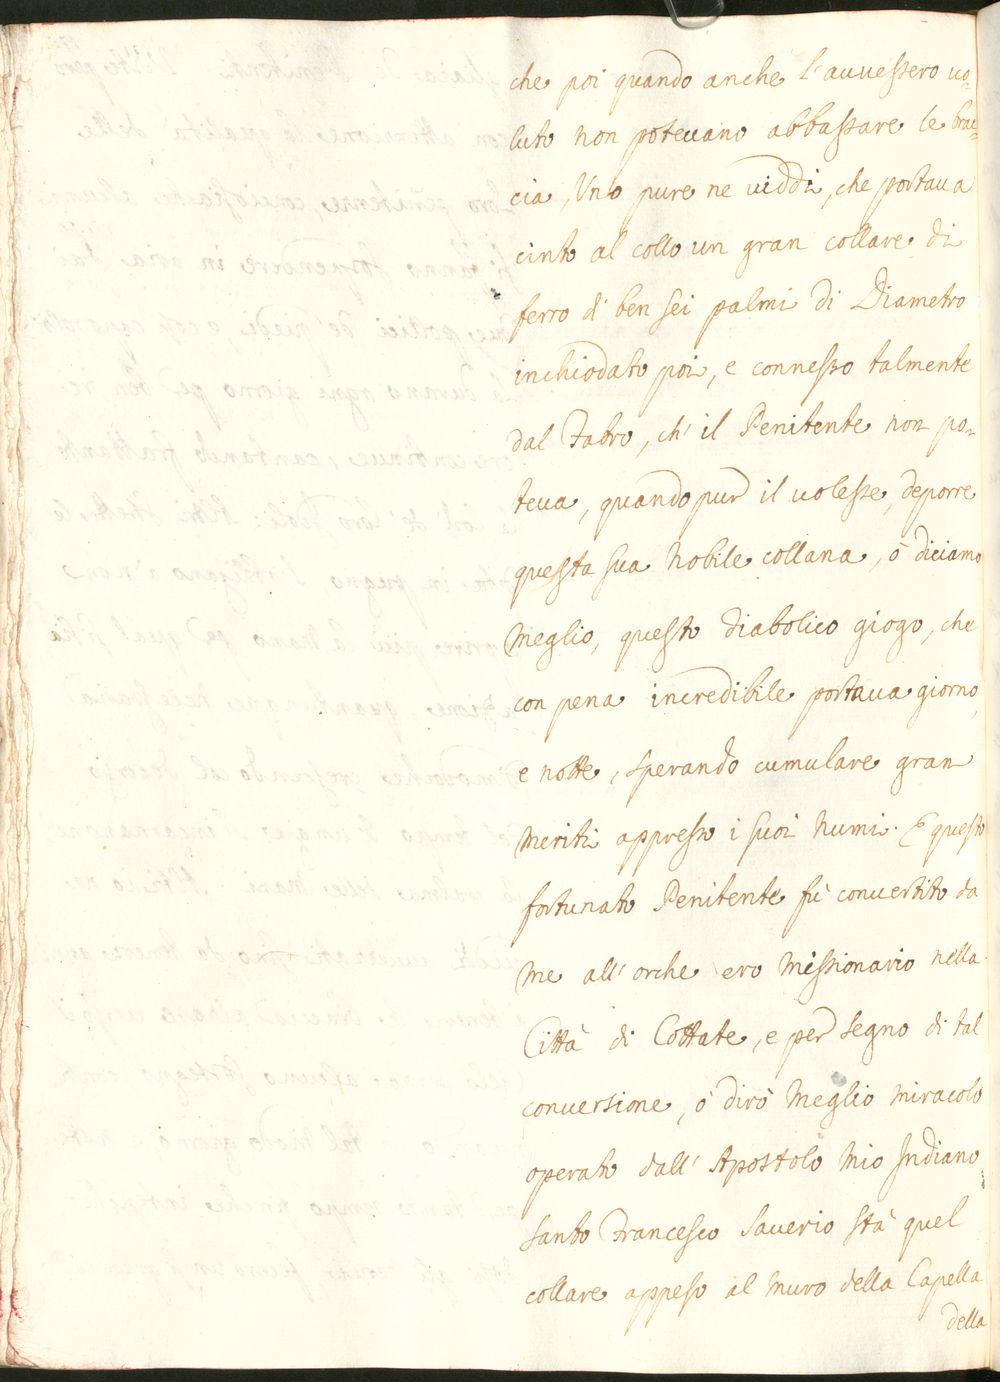 che poi quando anche l'auuessero uo-
luto non poteuano abbassare le brac-
cia, Uno pure ne uiddi, che portaua
cinto al collo un gran collare di
ferro d' ben sei palmi di Diametro
inchiodato poi, e connesso talmente
dal Fabro, ch' il Penitente non po-
teua, quando pur il uolesse, deporre
questa sua nobile collana, ò diciamo
meglio, questo diabolico giogo, che
con pena incredibile portaua giorno,
e notte, sperando cumulare gran
meriti appresso i suoi numi. E questo
fortunato Penitente fù conuertito da
me all'orche ero Missionario nella
Città di Cottate, e per segno di tal
conuersione, ò dirò meglio miracolo
operato dall' Apostolo mio Indiano
santo Francesco Sauerio stà quel
collare appeso al muro della Capella
della